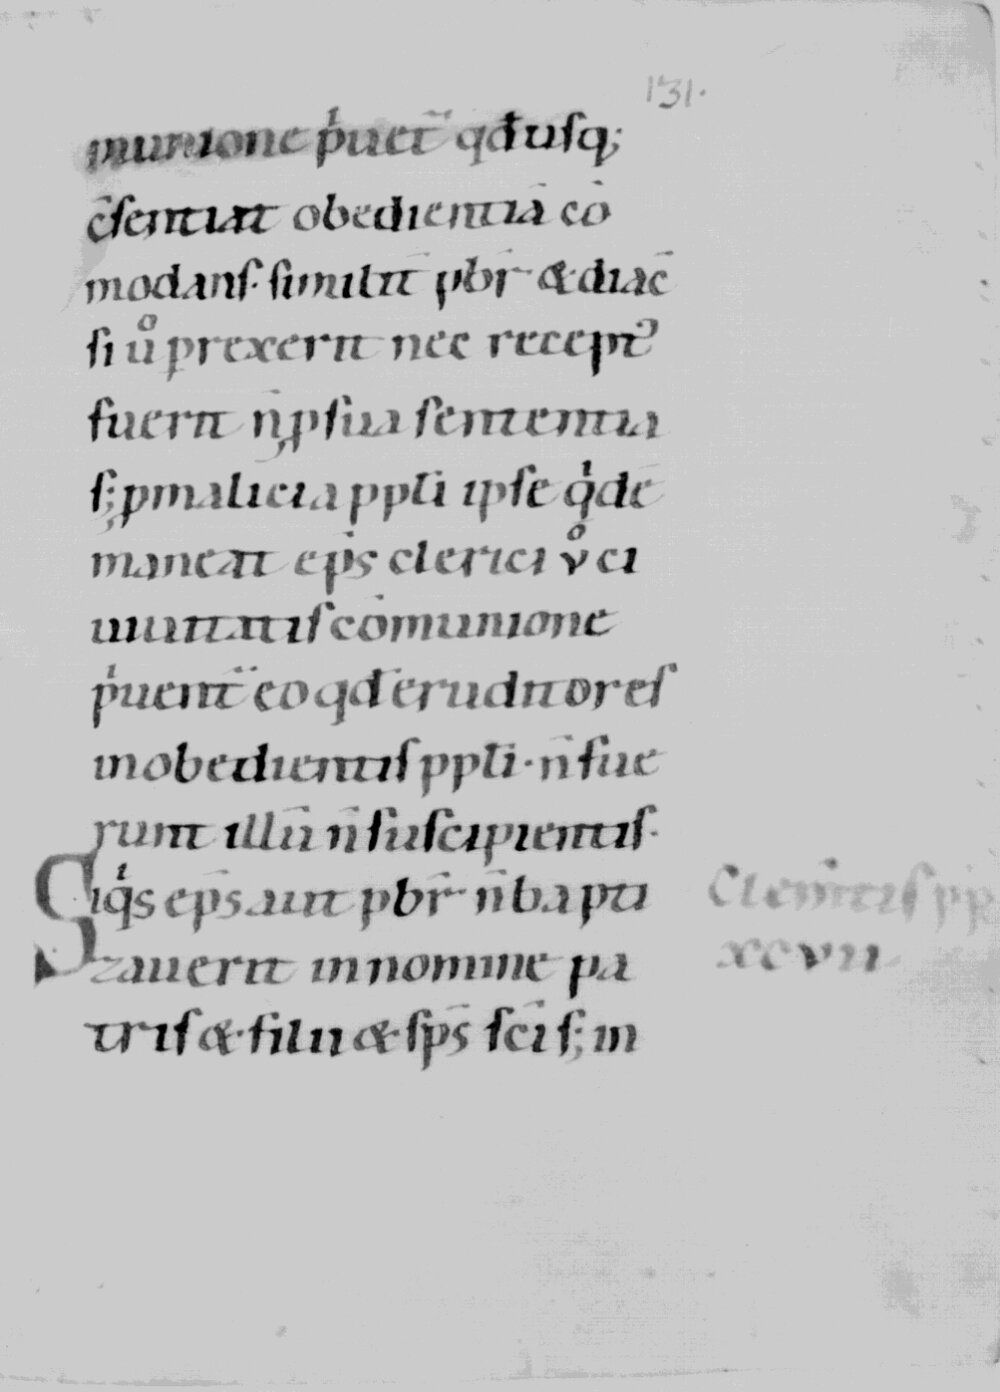 131.
munione p̍uet̄ qđ usq;
c̄sentiat obedientiā cō
modans. similit̄ pbr̄ & diac̄
si ůꝑrexerit nec recept᾽
fuerit n̄ ꝓ sua sententia
s; ꝓ malicia ppl̄i ipse q̍dē
maneat ep̄s clerici v̊ ci
uitatis cōmunione
p̍uent̄ eo qđ eruditores
inobedientis ppl̄i · n̄ fue
runt illū n̄ suscipientis.
Siq̍s ep̄s aut pbr̄ n̄ bapti
zauerit in nomine pa
tris & filii & sp̄s sc̄i s; in
Clem̄tis pp
xcvii